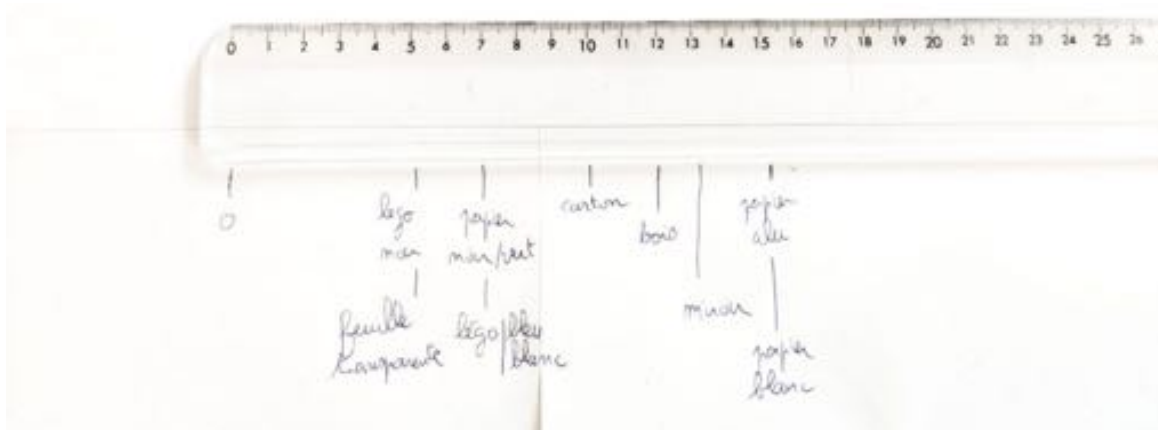 0 1 2 3 4 5 6 7 8 9 10 11 12 13 14 15 16 17 18 19 20 21 22 23 24 25 26
0
lego
noir
feuille
transparente
papier
noir/vert
légo/bleu
blanc
carton
bois
miroir
papier
alu
papier
blanc